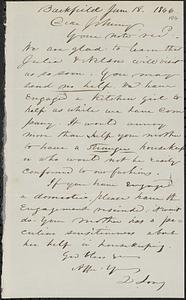 Buckfield Jan 18. 1866
Dear Johnny
Your note rec'd.
We are glad to learn that
Julia & Nelson will visit
us so soon. You may
send no help. We have
engaged a kitchen girl to
help us while we have com
pany. It wont any
more than help your mother
to have a stranger housekeep
er who wont not be easily
conformed to our fashions.
If you have engaged
a domestic please have the
engagement rescinded.
do. Your mother has a pe
culiar sensitiveness about
her help in housekeeping.
God bless
Aff. Yr
Long